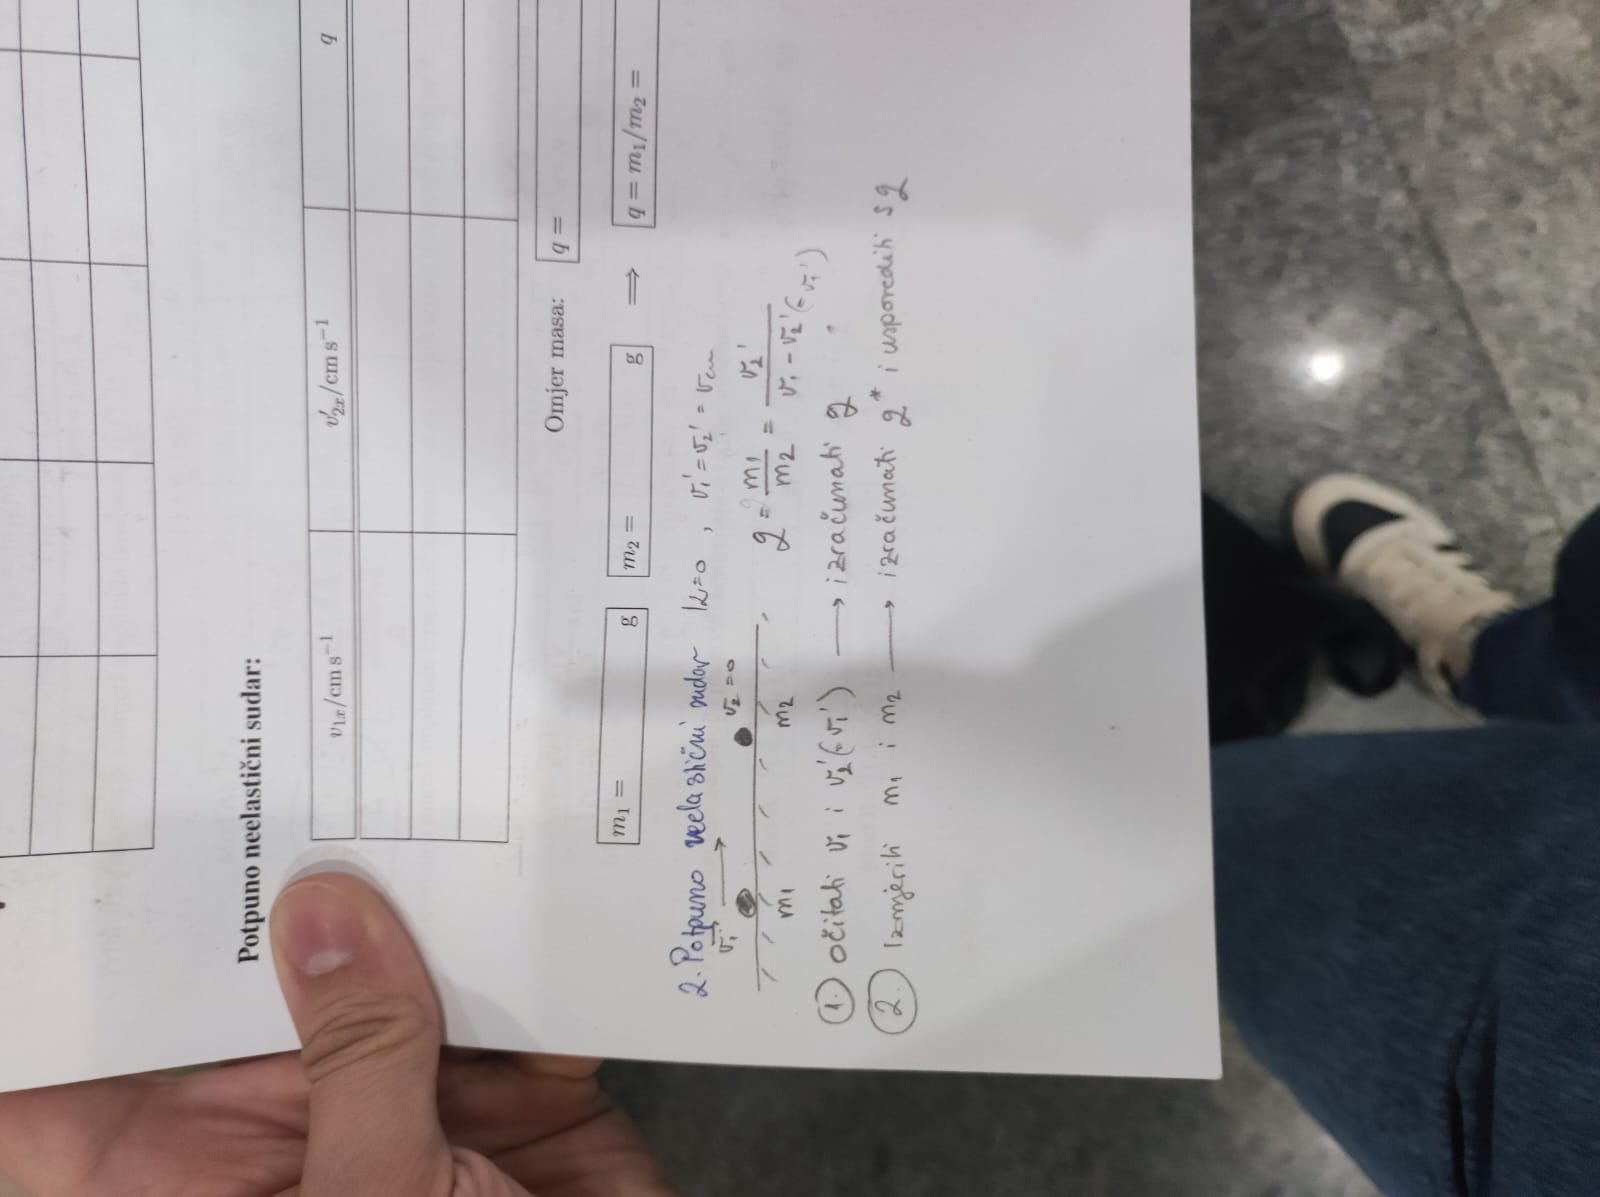 Potpuno neelastični sudar:
v1x/cm s⁻¹ v′2x/cm s⁻¹ q
Omjer masa: q =
m1 = g m2 = g ⟹ q = m1/m2 =
2. Potpuno neelastični sudar k=0, v1' = v2' = vcm
v1 → v2=0
m1 m2 q = m1/m2 = v2'/(v1 - v2' (=v1'))
1. očitati v1 i v2' (=v1') → izračunati q
2. Izmjeriti m1 i m2 → izračunati q* i usporediti s q